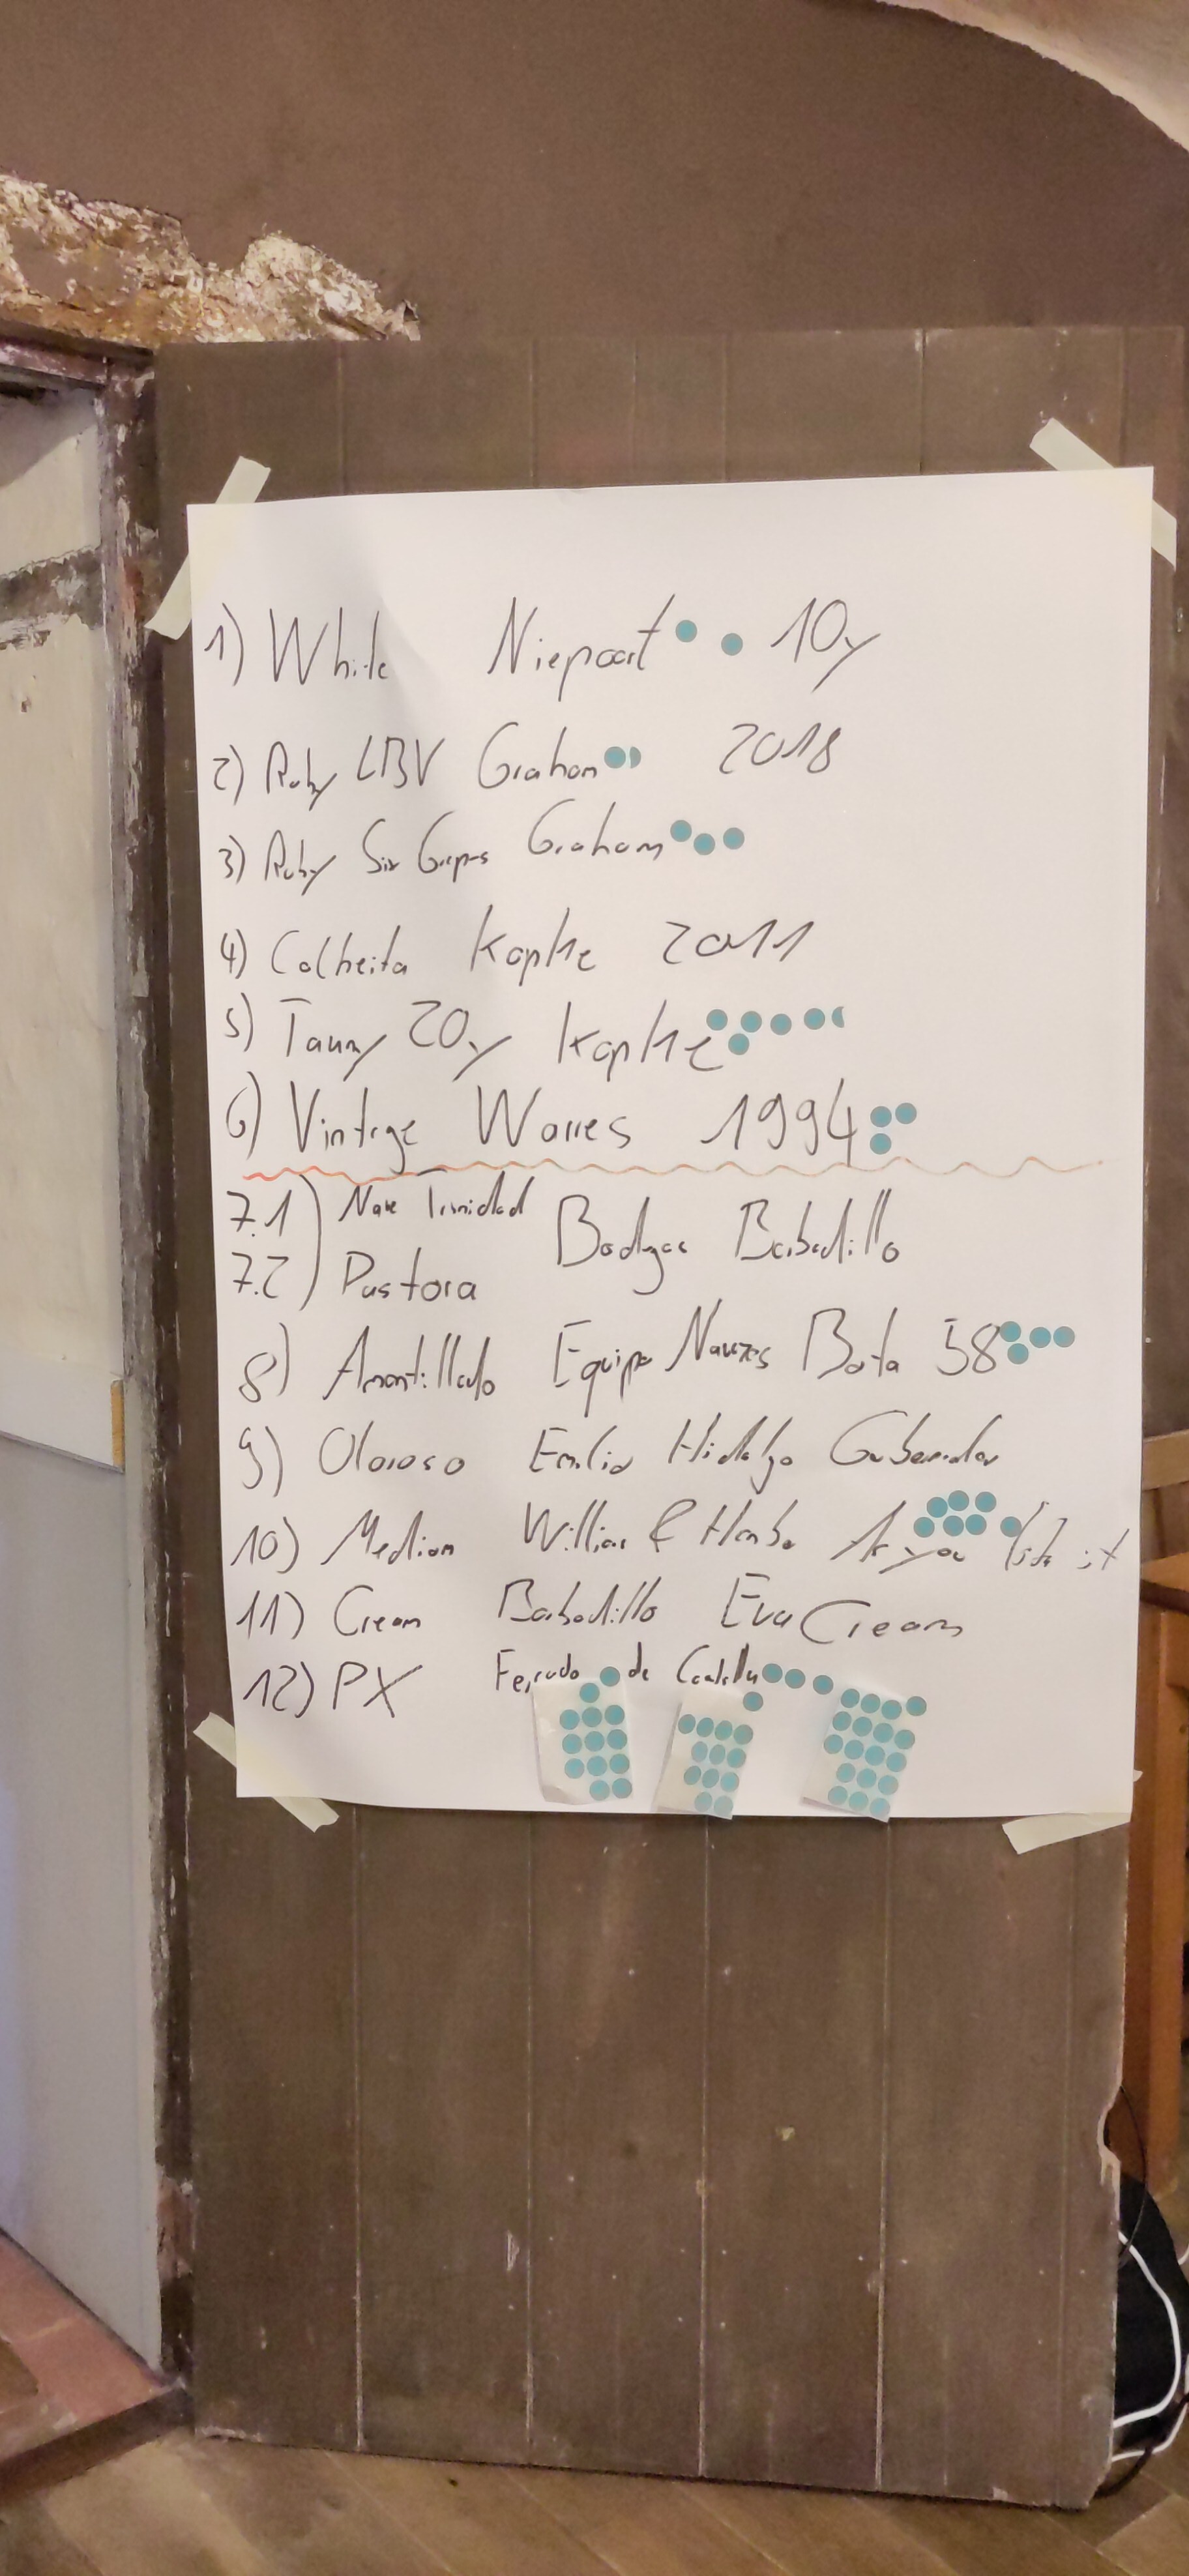 1) White Niepoort 10y
2) Ruby LBV Graham 2018
3) Ruby Six Grapes Graham
4) Colheita Kopke 2011
5) Tawny 20y Kopke
6) Vintage Warres 1994
7.1) Nave Trinidad Bodegas Barbadillo
7.2) Pastora
8) Amontillado Equipo Navazos Bota 58
9) Oloroso Emilio Hidalgo Gobernador
10) Medium Williams & Humbert As you like it
11) Cream Barbadillo Eva Cream
12) PX Fernando de Castilla